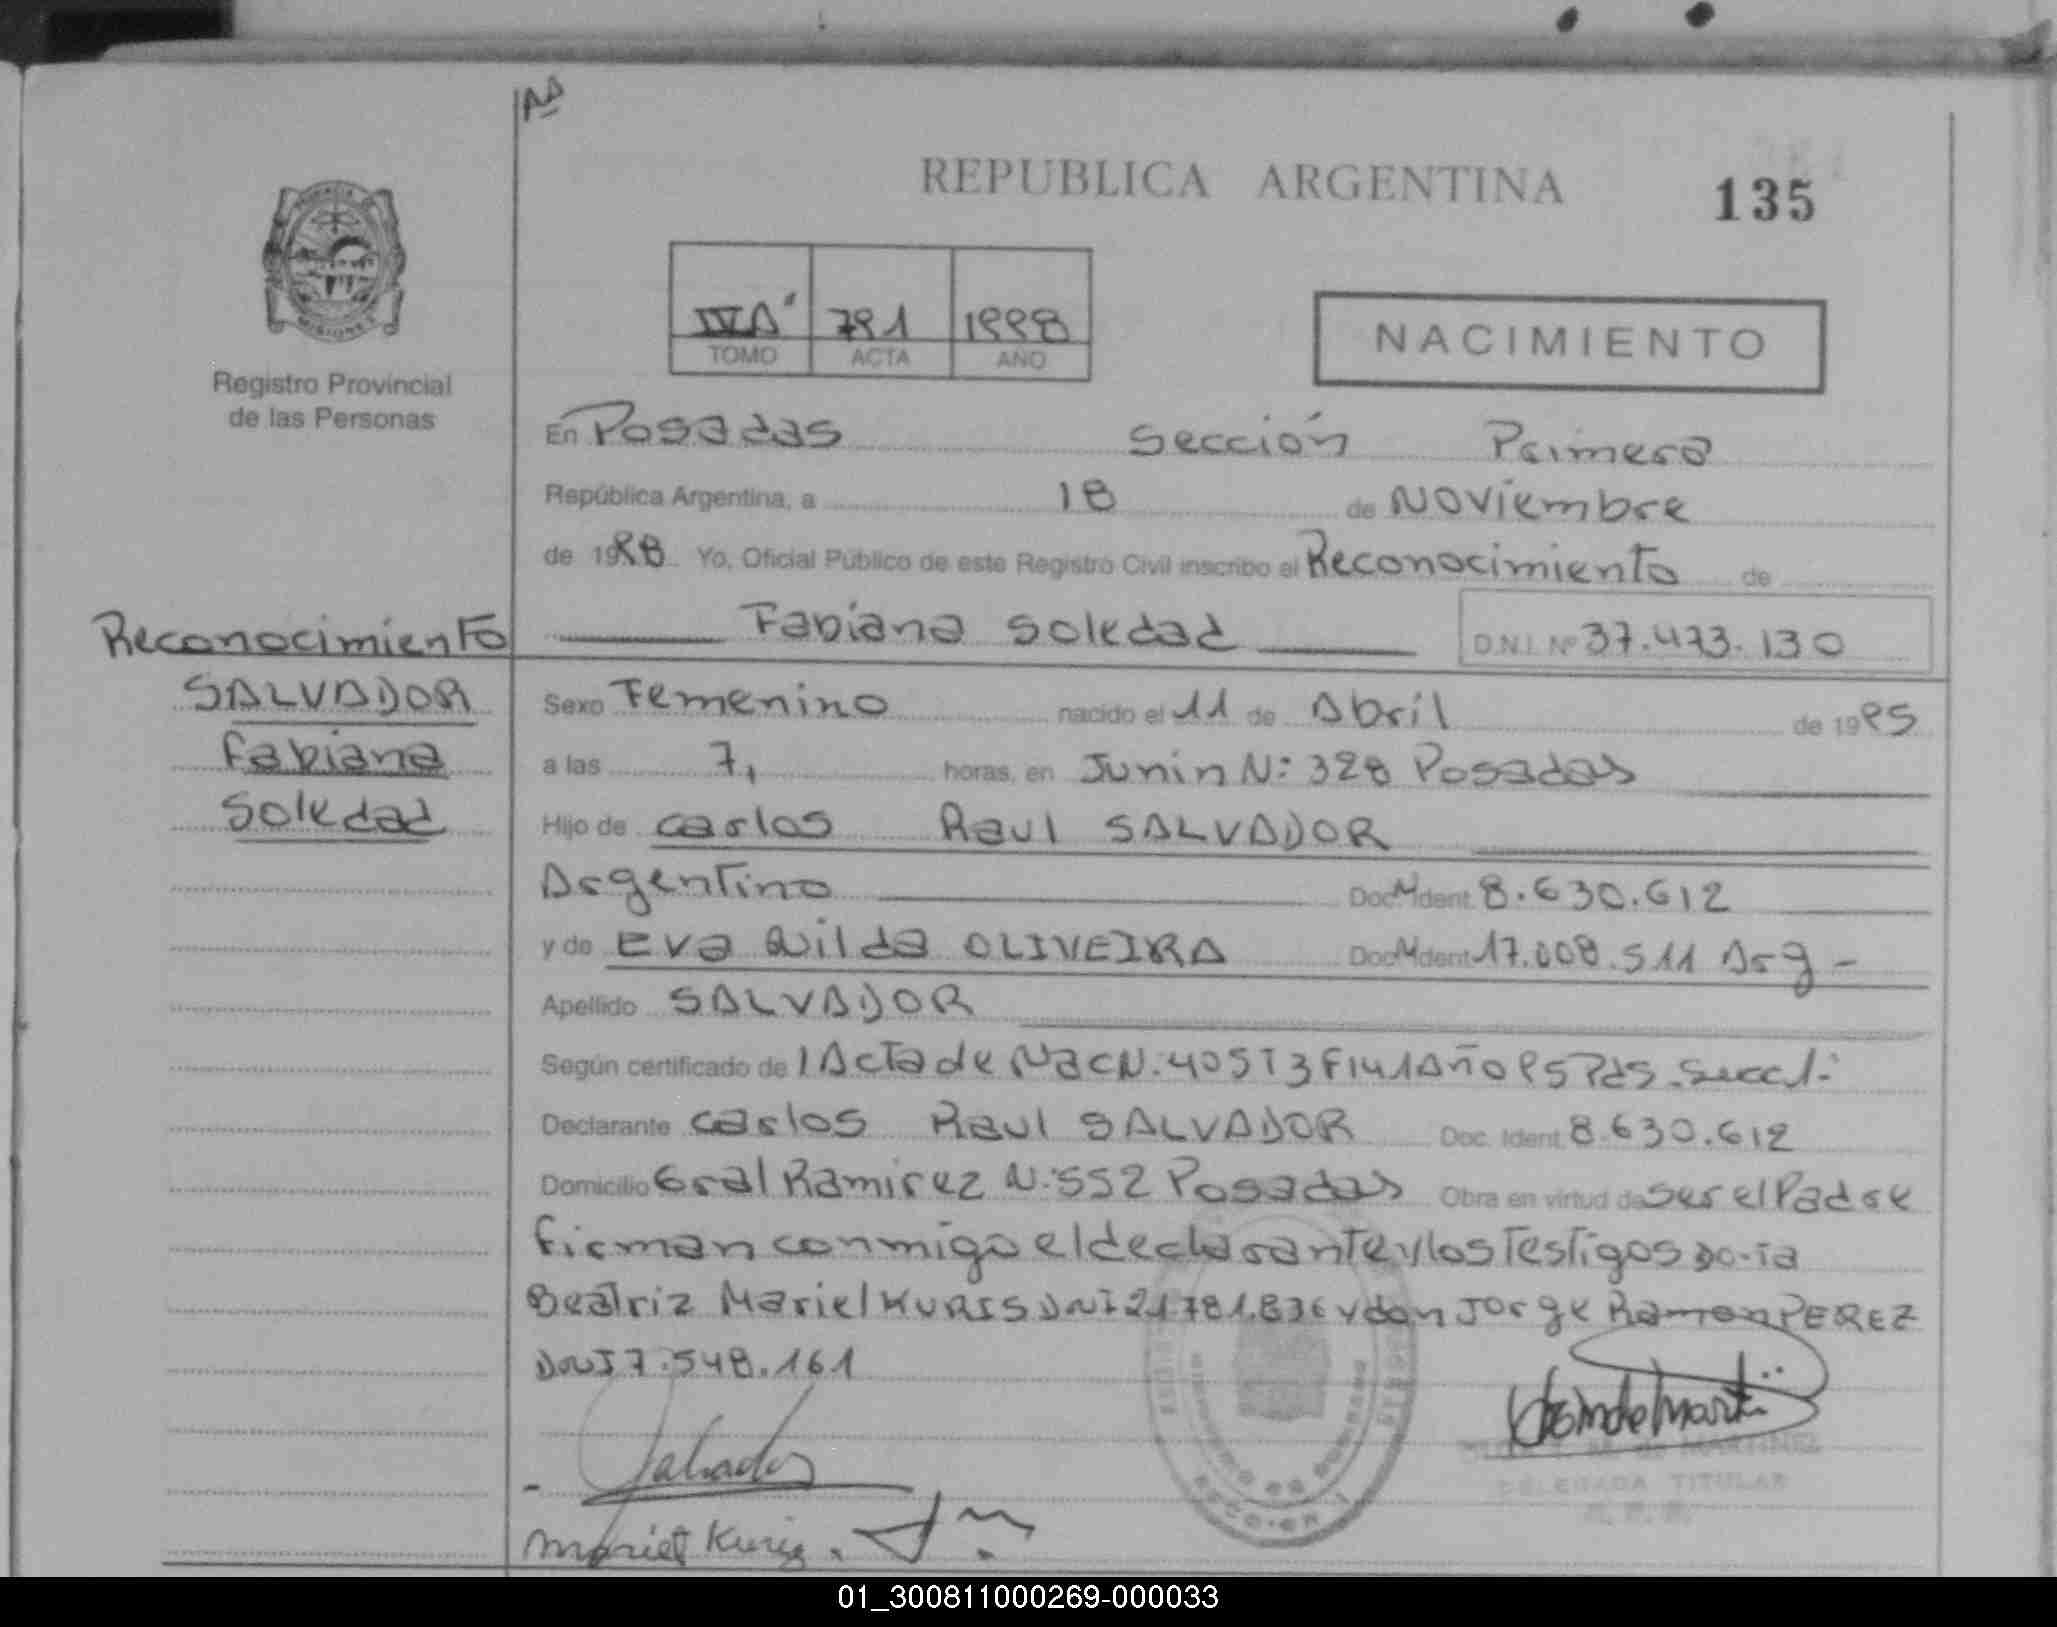 REPUBLICA ARGENTINA
135
IVA 791 1998
TOMO ACTA AÑO
NACIMIENTO
MISIONES
Registro Provincial
de las Personas
En Posadas Sección Primera
República Argentina, a 18 de Noviembre
de 1998 Yo, Oficial Público de este Registro Civil inscribo el Reconocimiento de
Fabiana Soledad D.N.I. Nº 37.473.130
Reconocimiento
SALVADOR
Fabiana
Soledad
Sexo Femenino nacido el 11 de Abril de 1995
a las 7, horas, en Junin N: 328 Posadas
Hijo de Carlos Raul SALVADOR
Argentino Doc. Ident. 8.630.612
y de Eva Nilda OLIVEIRA Doc. Ident. 17.008.511 Arg -
Apellido SALVADOR
Según certificado de 1 Acta de Nac N: 405 T3 F141 Año 95 Pds. Secc 1:
Declarante Carlos Raul SALVADOR Doc. Ident. 8.630.612
Domicilio Gral Ramirez N: 552 Posadas Obra en virtud de ser el Padre
firman conmigo el declarante y los Testigos
Beatriz Mariel KURIS DNI 21.781.836 y don Jorge Ramon PEREZ
DNI 7.548.161
Salvador
MARTINEZ
DELEGADA TITULAR
Mariel Kuris
01_300811000269-000033